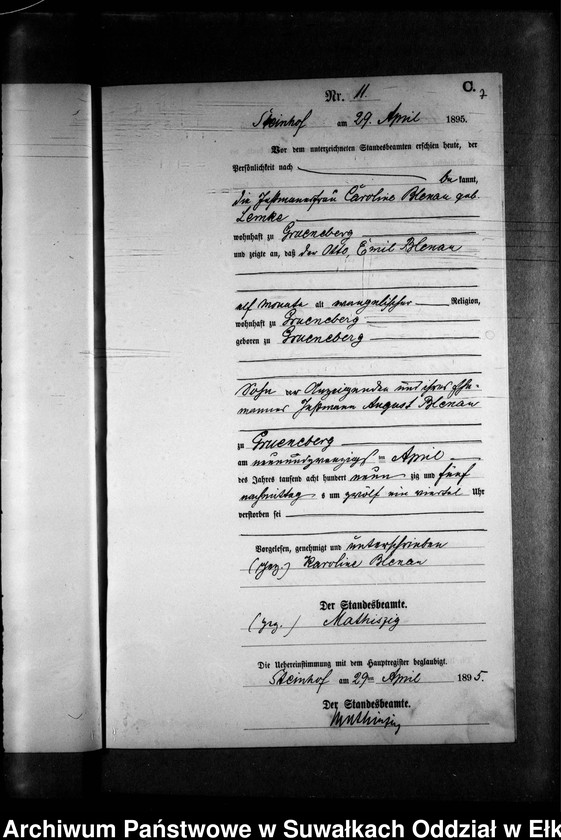 C.
7
Nr. 11.
Steinhof am 29. April 1895.
Vor dem unterzeichneten Standesbeamten erschien heute, der
Persönlichkeit nach be kannt,
die Jnstmannfrau Caroline Blenau geb.
Lemke
wohnhaft zu Grueneberg
und zeigte an, daß der Otto, Emil Blenau
elf Monate alt evangelischer Religion,
wohnhaft zu Grueneberg
geboren zu Grueneberg
Sohn der Anzeigenden und ihres Ehe-
mannes Jnstmann August Blenau
zu Grueneberg
am neunundzwanzigsten April
des Jahres tausend acht hundert neun zig und fünf
nachmittag s um zwölf ein viertel Uhr
verstorben sei
Vorgelesen, genehmigt und unterschrieben
(gez.) Karoline Blenau
Der Standesbeamte.
(gez.) Mathiszig
Die Uebereinstimmung mit dem Hauptregister beglaubigt.
Steinhof am 29ten April 1895.
Der Standesbeamte.
Mathiszig
Archiwum Państwowe w Suwałkach Oddział w Ełk